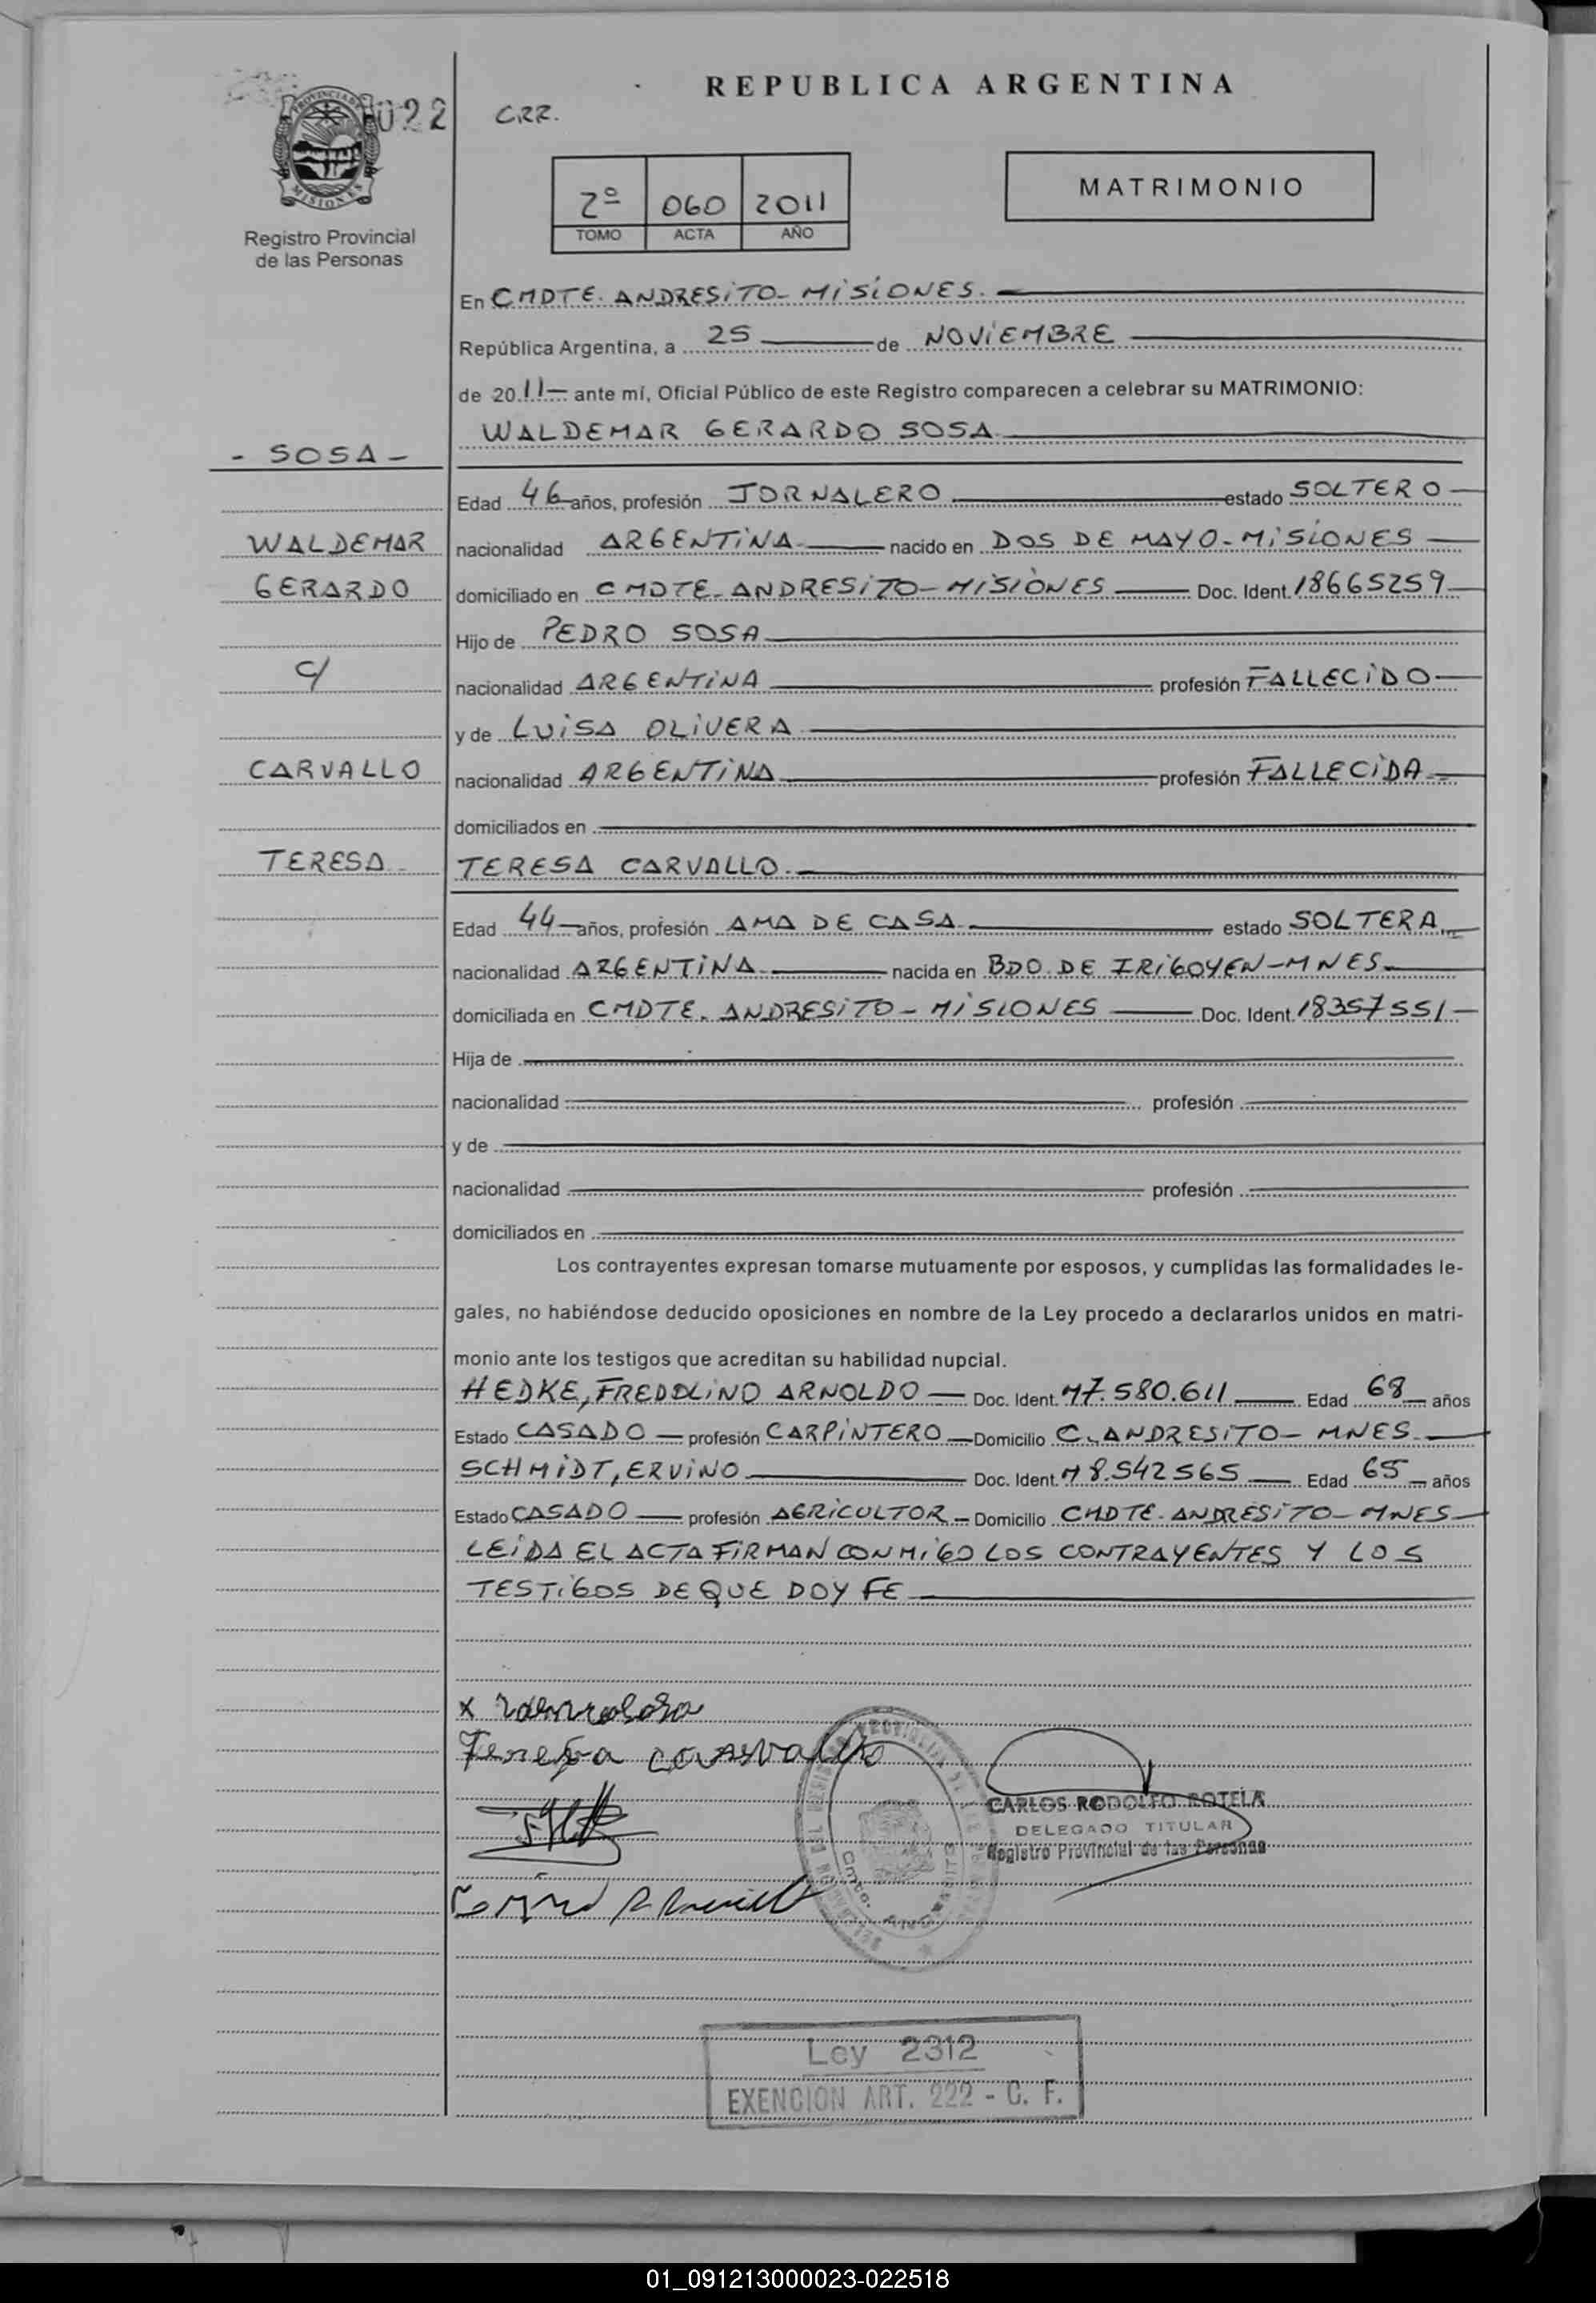 REPUBLICA ARGENTINA
022
CRR.
PROVINCIA DE
MISIONES
Registro Provincial
de las Personas
2º 060 2011
TOMO ACTA AÑO
MATRIMONIO
En CMDTE. ANDRESITO - MISIONES.
República Argentina, a 25 de NOVIEMBRE
de 2011 ante mí, Oficial Público de este Registro comparecen a celebrar su MATRIMONIO:
WALDEMAR GERARDO SOSA
- SOSA -
Edad 46 años, profesión JORNALERO estado SOLTERO
WALDEMAR
nacionalidad ARGENTINA nacido en DOS DE MAYO - MISIONES
GERARDO
domiciliado en CMDTE. ANDRESITO - MISIONES Doc. Ident. 18665259
Hijo de PEDRO SOSA
C/
nacionalidad ARGENTINA profesión FALLECIDO
y de LUISA OLIVERA
CARVALLO
nacionalidad ARGENTINA profesión FALLECIDA
domiciliados en
TERESA
TERESA CARVALLO.
Edad 44 años, profesión AMA DE CASA estado SOLTERA
nacionalidad ARGENTINA nacida en BDO. DE IRIGOYEN - MNES
domiciliada en CMDTE. ANDRESITO - MISIONES Doc. Ident. 18357551
Hija de
nacionalidad profesión
y de
nacionalidad profesión
domiciliados en
Los contrayentes expresan tomarse mutuamente por esposos, y cumplidas las formalidades le-
gales, no habiéndose deducido oposiciones en nombre de la Ley procedo a declararlos unidos en matri-
monio ante los testigos que acreditan su habilidad nupcial.
HEDKE, FREDOLINO ARNOLDO Doc. Ident. M7.580.611 Edad 68 años
Estado CASADO profesión CARPINTERO Domicilio C. ANDRESITO - MNES
SCHMIDT, ERVINO Doc. Ident. M8.542565 Edad 65 años
Estado CASADO profesión AGRICULTOR Domicilio CMDTE. ANDRESITO - MNES
LEIDA EL ACTA FIRMAN CONMIGO LOS CONTRAYENTES Y LOS
TESTIGOS DE QUE DOY FE
x
Teresa Carvallo
CARLOS RODOLFO ROTELA
DELEGADO TITULAR
Registro Provincial de las Personas
Cmte. ANDRESITO
Ley 2312
EXENCION ART. 222 - C. F.
01_091213000023-022518